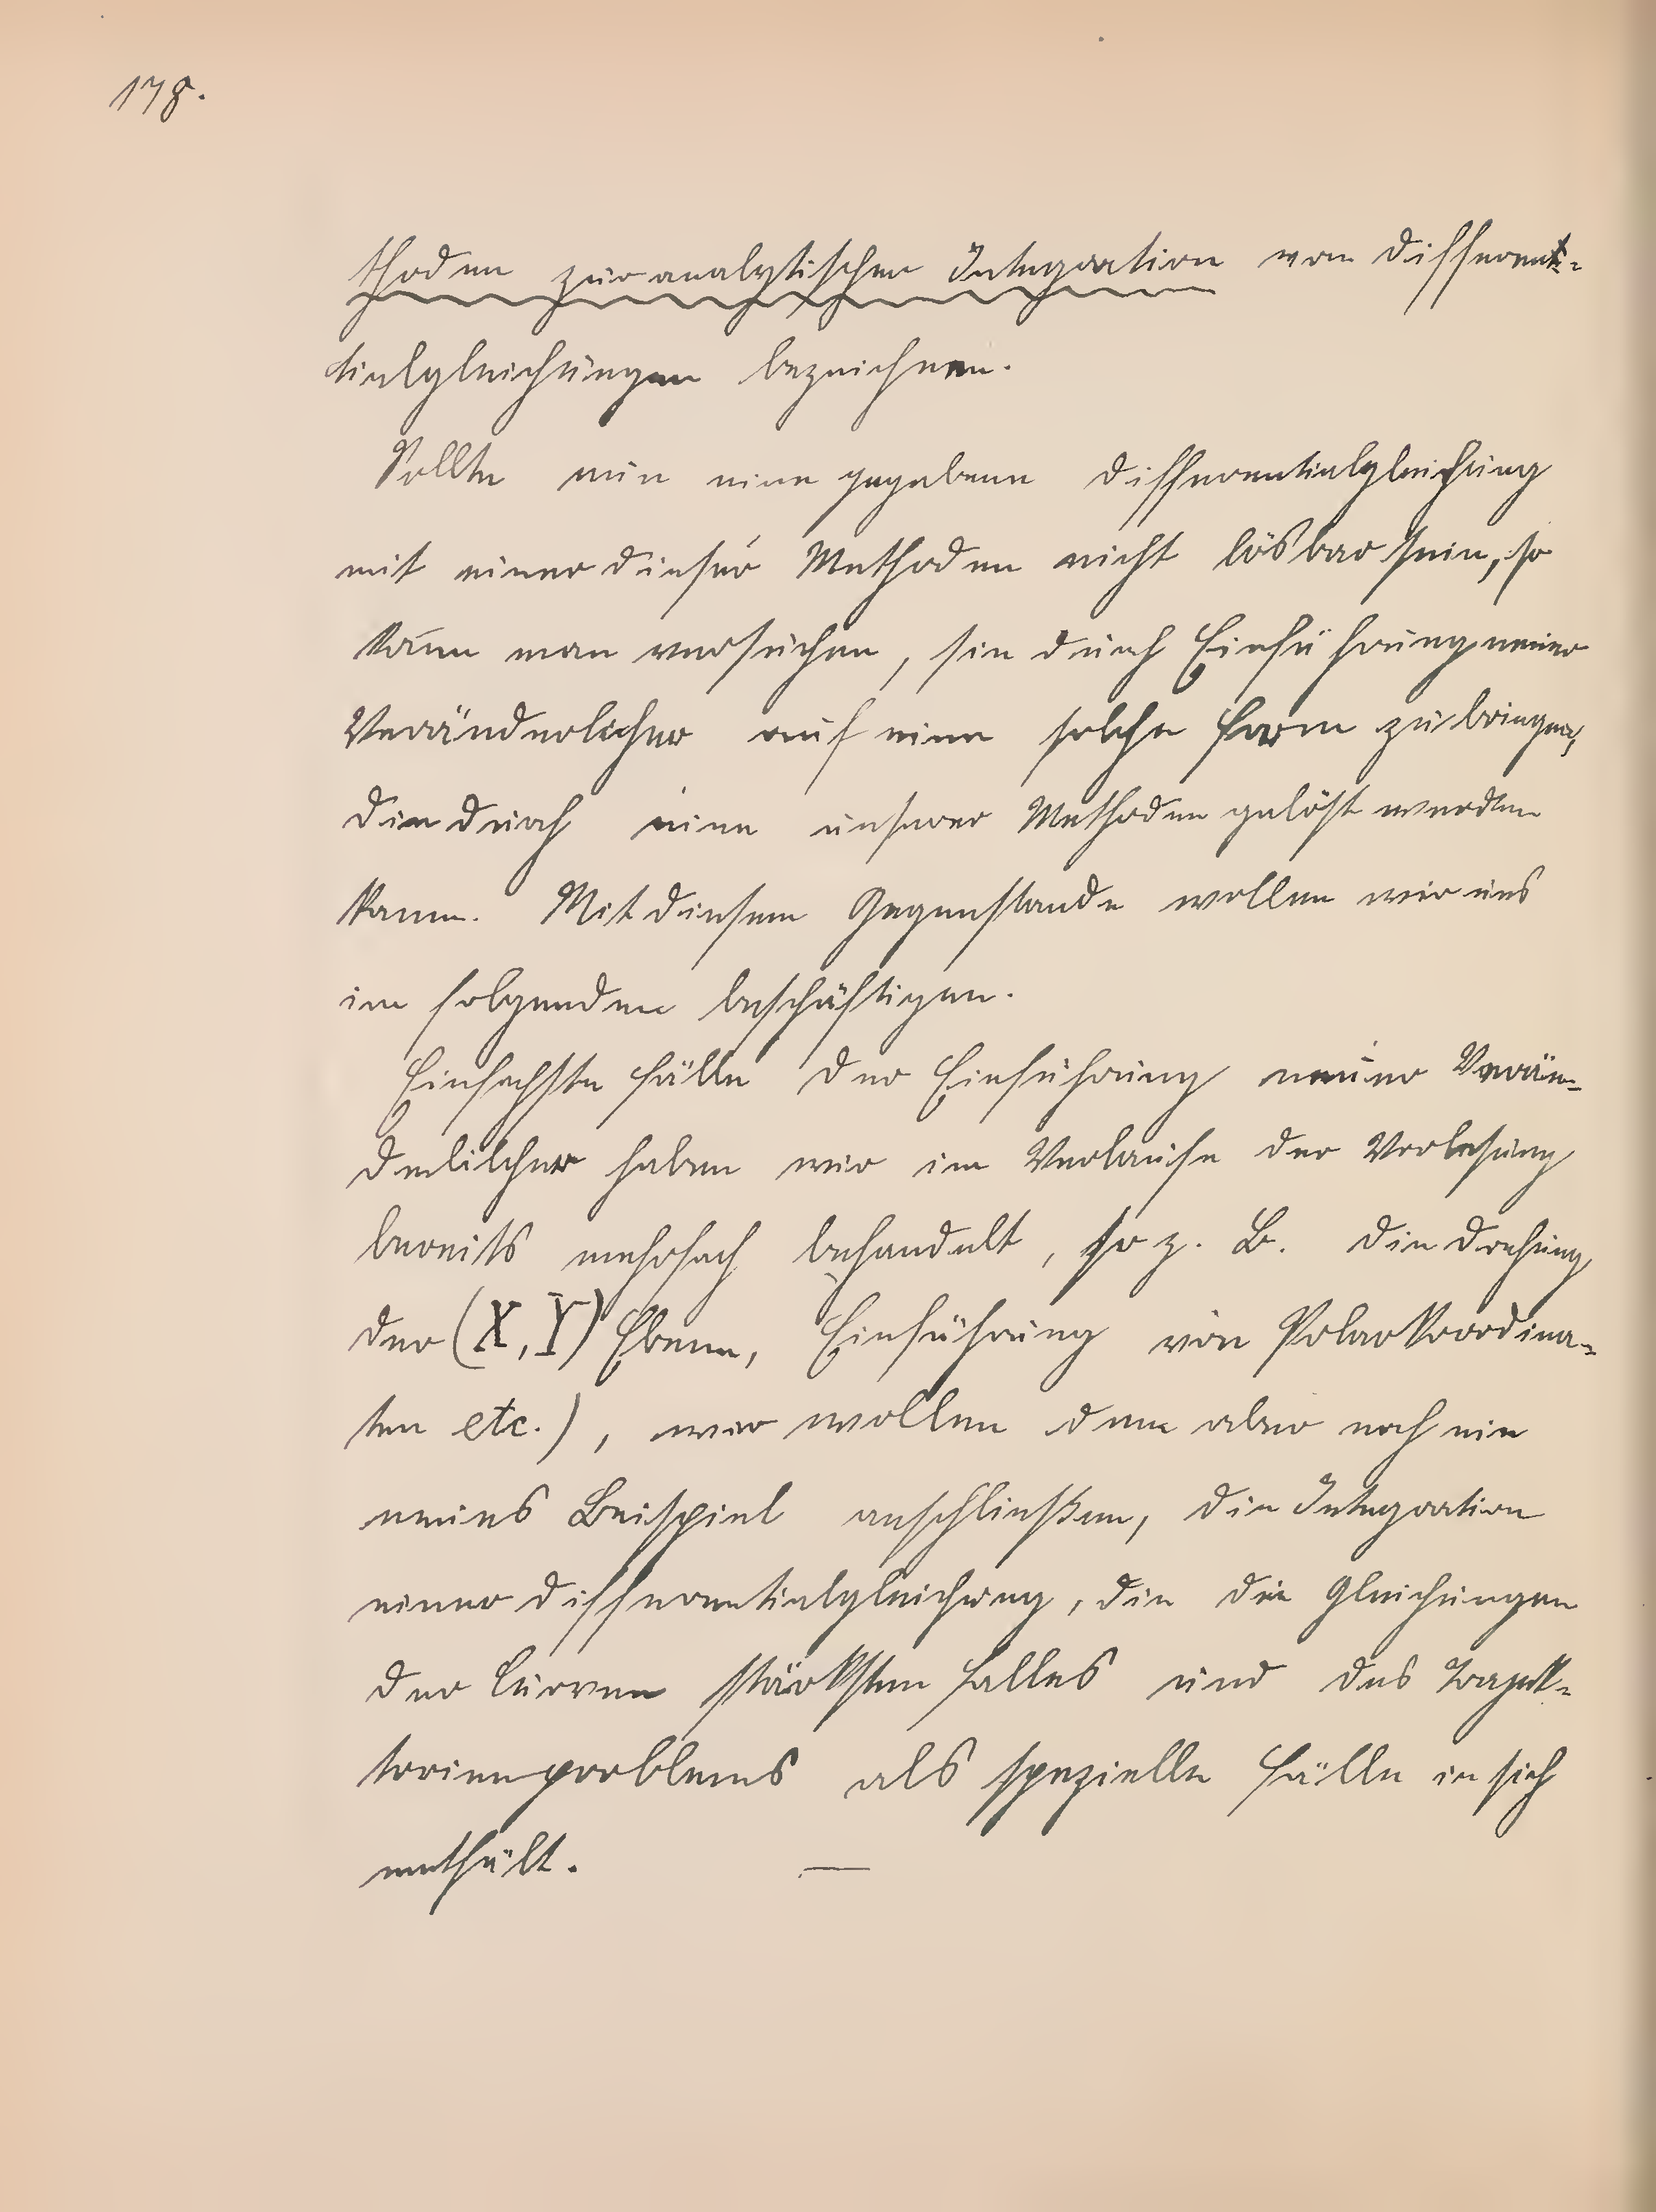 178.
thoden zur analytischen Integration von Differen-
tialgleichungen bezeichnen.
Sollte nun eine gegebene Differentialgleichung
mit einer dieser Methoden nicht lösbar sein, so
kann man versuchen, sie durch Einführung neuer
Veränderlicher auf eine solche Form zu bringen,
die durch eine unserer Methoden gelöst werden
kann. Mit diesem Gegenstande wollen wir uns
im folgenden beschäftigen.
Einfachste Fälle der Einführung neuer Verän-
derlicher haben wir im Verlaufe der Vorlesung
bereits mehrfach behandelt, so z. B. die Drehung
der (X, Y) Ebene, Einführung von Polarkoordina-
ten etc.), wir wollen dem aber noch ein
neues Beispiel anschließen, die Integration
einer Differentialgleichung, die die Gleichungen
der Curven stärksten Falles und des Trajek-
torienproblems als spezielle Fälle in sich
enthält. —